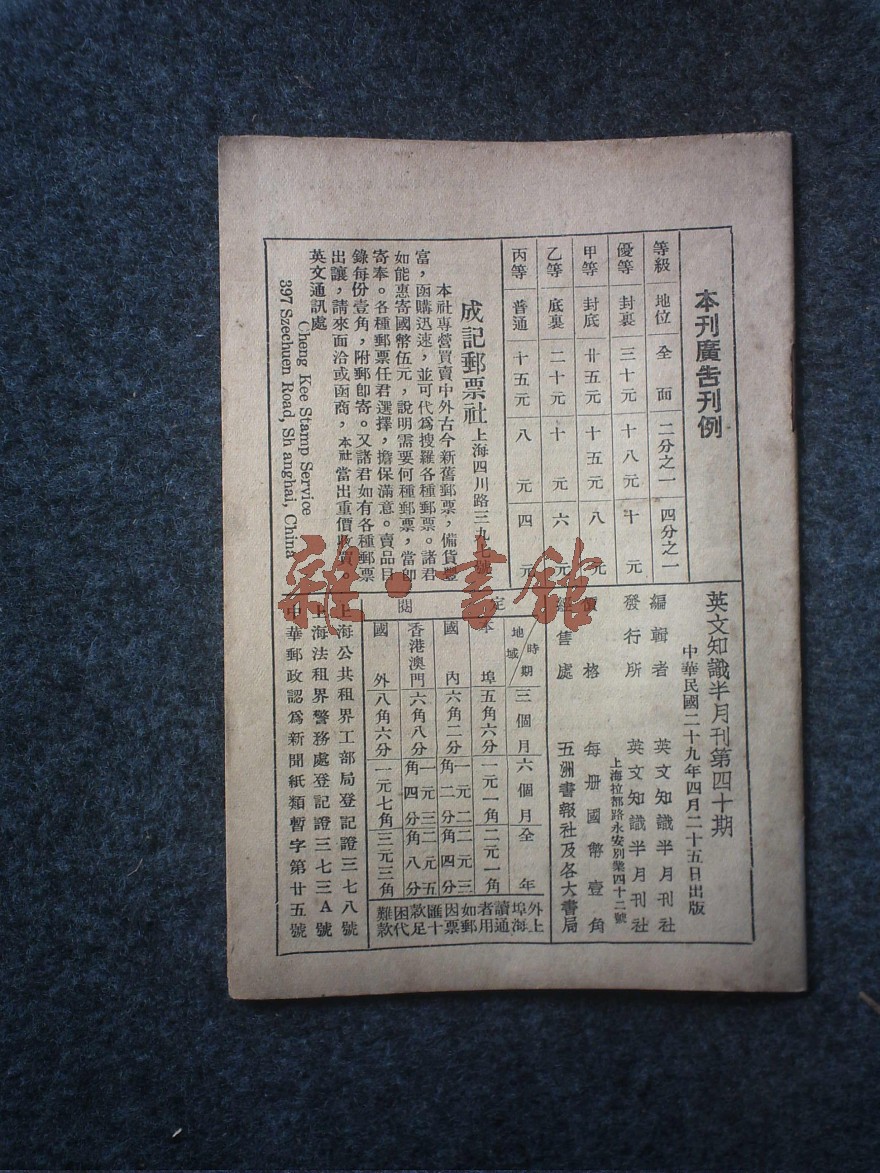 本刊廣告刊例
等級 地位 全面 二分之一 四分之一
優等 封裏 三十元 十八元 十元
甲等 封底 廿五元 十五元 八元
乙等 底裏 二十元 十元 六元
丙等 普通 十五元 八元 四元
成記郵票社 上海四川路三九七號
本社專營買賣中外古今新舊郵票，備貨豐
富，函購迅速，並可代爲搜羅各種郵票。諸君
如能惠寄國幣伍元，說明需要何種郵票，當卽
寄奉。各種郵票任君選擇，擔保滿意。賣品目
錄每份壹角，附郵卽寄。又諸君如有各種郵票
出讓，請來面洽或函商，本社當出重價收買。
英文通訊處
Cheng Kee Stamp Service
397 Szechuen Road, Sh anghai, China
英文知識半月刊第四十期
中華民國二十九年四月二十五日出版
編輯者 英文知識半月刊社
發行所 英文知識半月刊社
上海拉都路永安別業四十二號
價格 每册國幣壹角
經售處 五洲書報社及各大書局
定閱
時期 地域 三個月 六個月 全年
本埠 五角六分 一元一角 二元一角
國內 六角二分 一元二角二分 二元三角四分
香港澳門 六角八分 一元三角四分 二元五角八分
國外 八角六分 一元七角 三元三角
外埠讀者如因匯款困難
上海通用郵票十足代款
上海公共租界工部局登記證三七八號
上海法租界警務處登記證三七三A號
中華郵政認爲新聞紙類暫字第廿五號
雜·書館